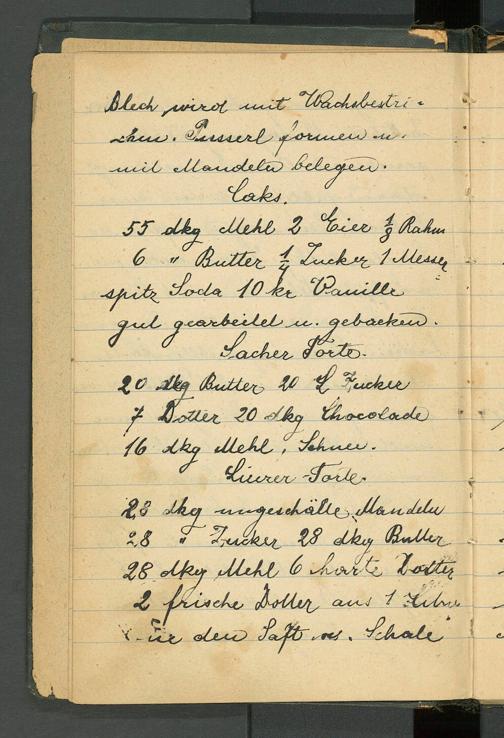 Blech wird mit Wachs bestri-
chen. Pusserl formen u.
mit Mandeln belegen.
Caks.
55 dkg Mehl 2 Eier 1/8 Rahm
6 " Butter 1/4 Zucker 1 Messer
spitz Soda 10 kr Vanille
gut gearbeitet u. gebacken.
Sacher Torte.
20 dkg Butter 20 Zucker
7 Dotter 20 dkg Chocolade
16 dkg Mehl, Schnee.
Linzer-Torte.
28 dkg ungeschälte Mandeln
28 " Zucker 28 dkg Butter
28 dkg Mehl 6 harte Dotter
2 frische Dotter aus 1
den Saft u. Schale